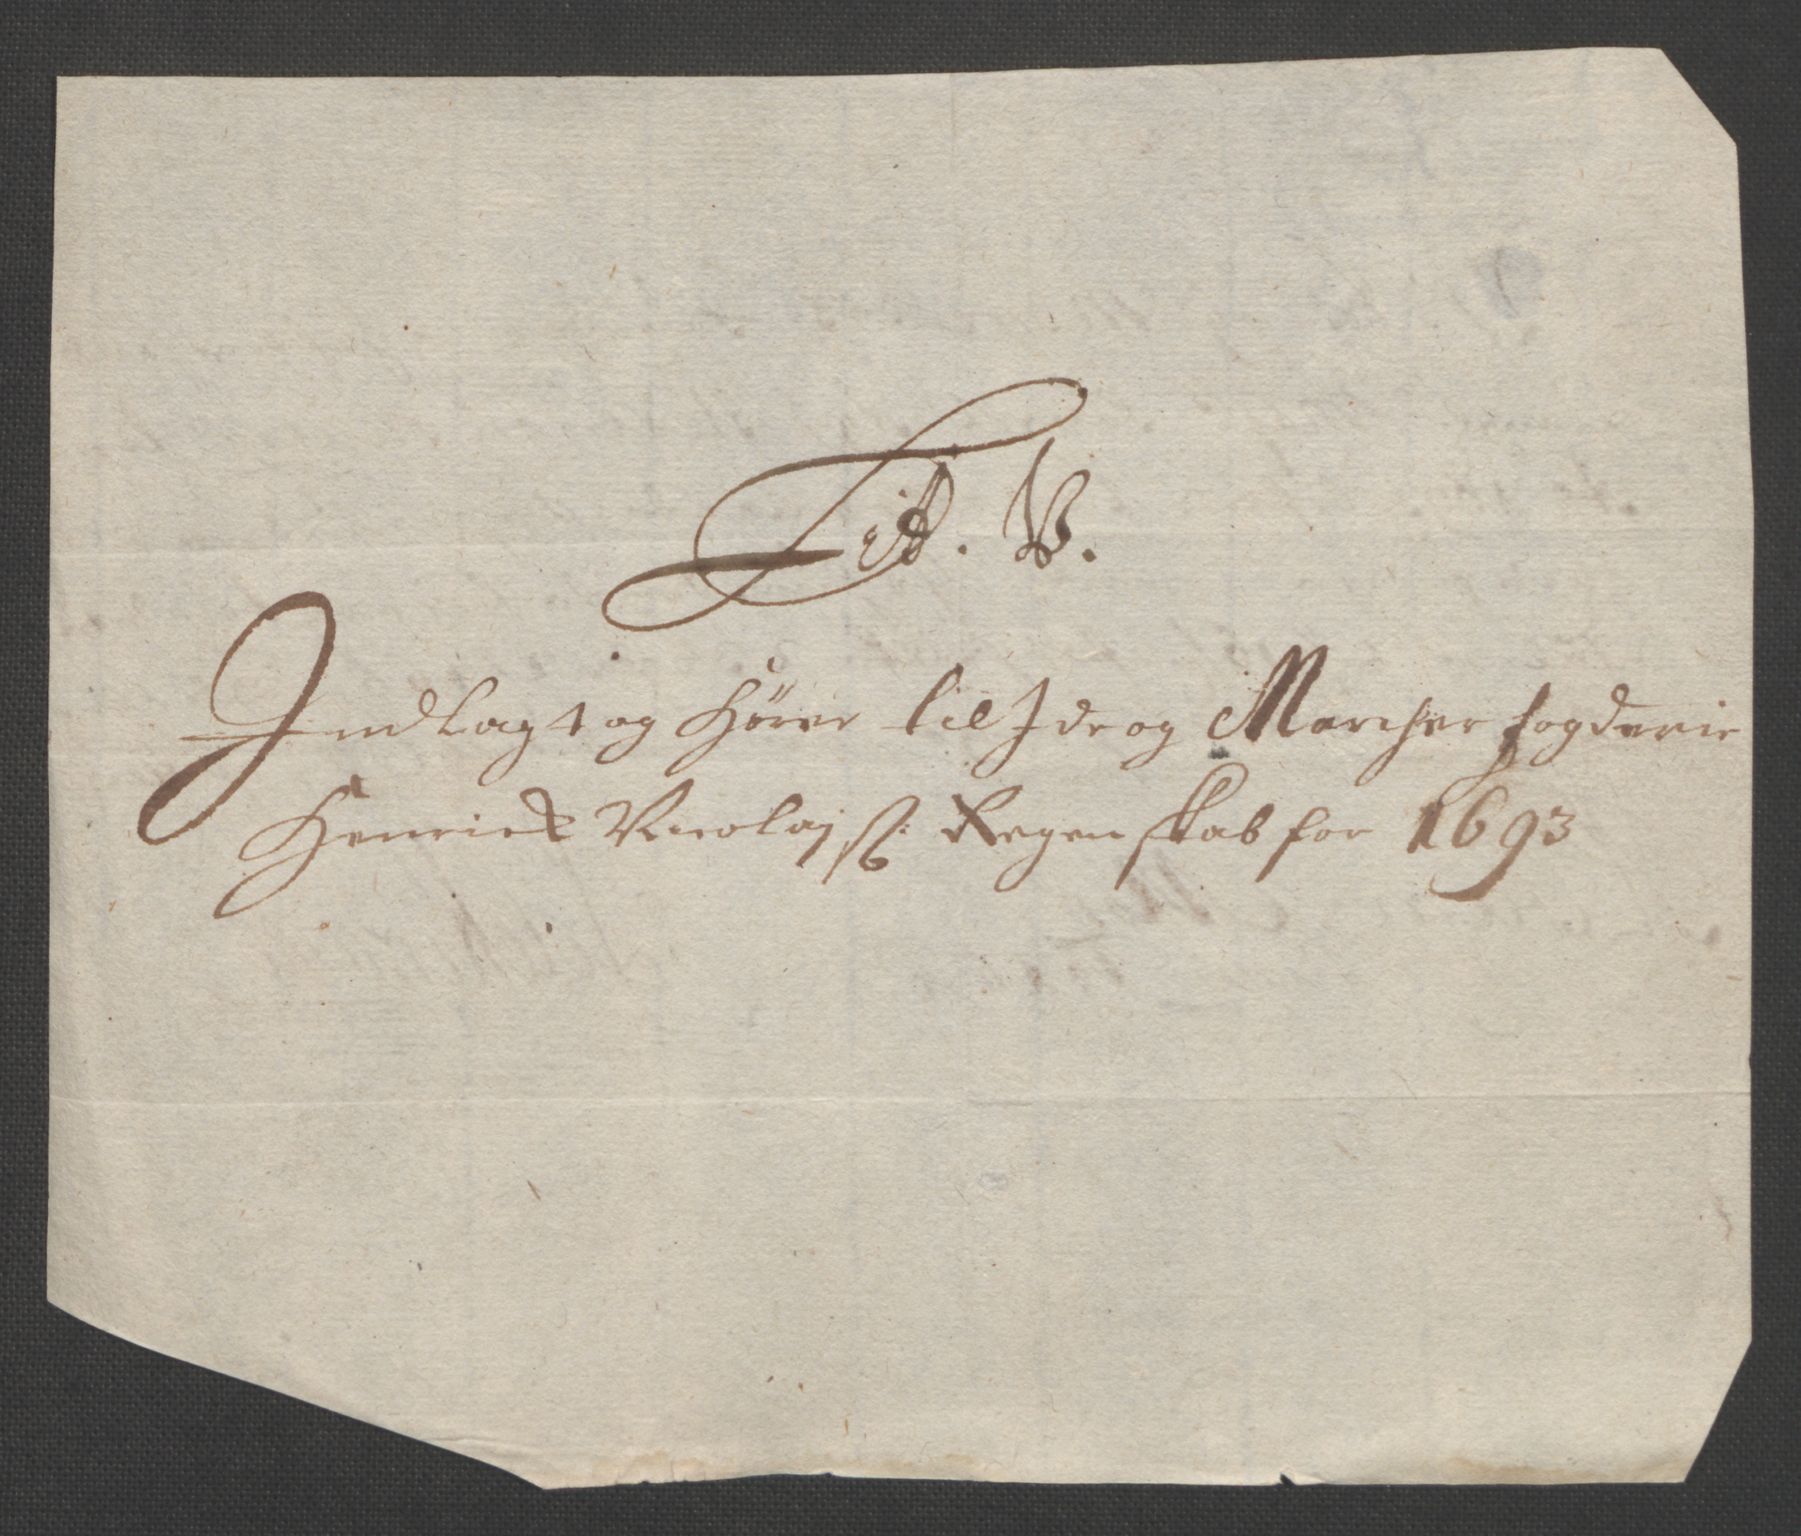 Lit. B.
Indlagt og hörer til Ide og Marcher fogderie
Henrich Nicolaj ß: Regenskab for 1693